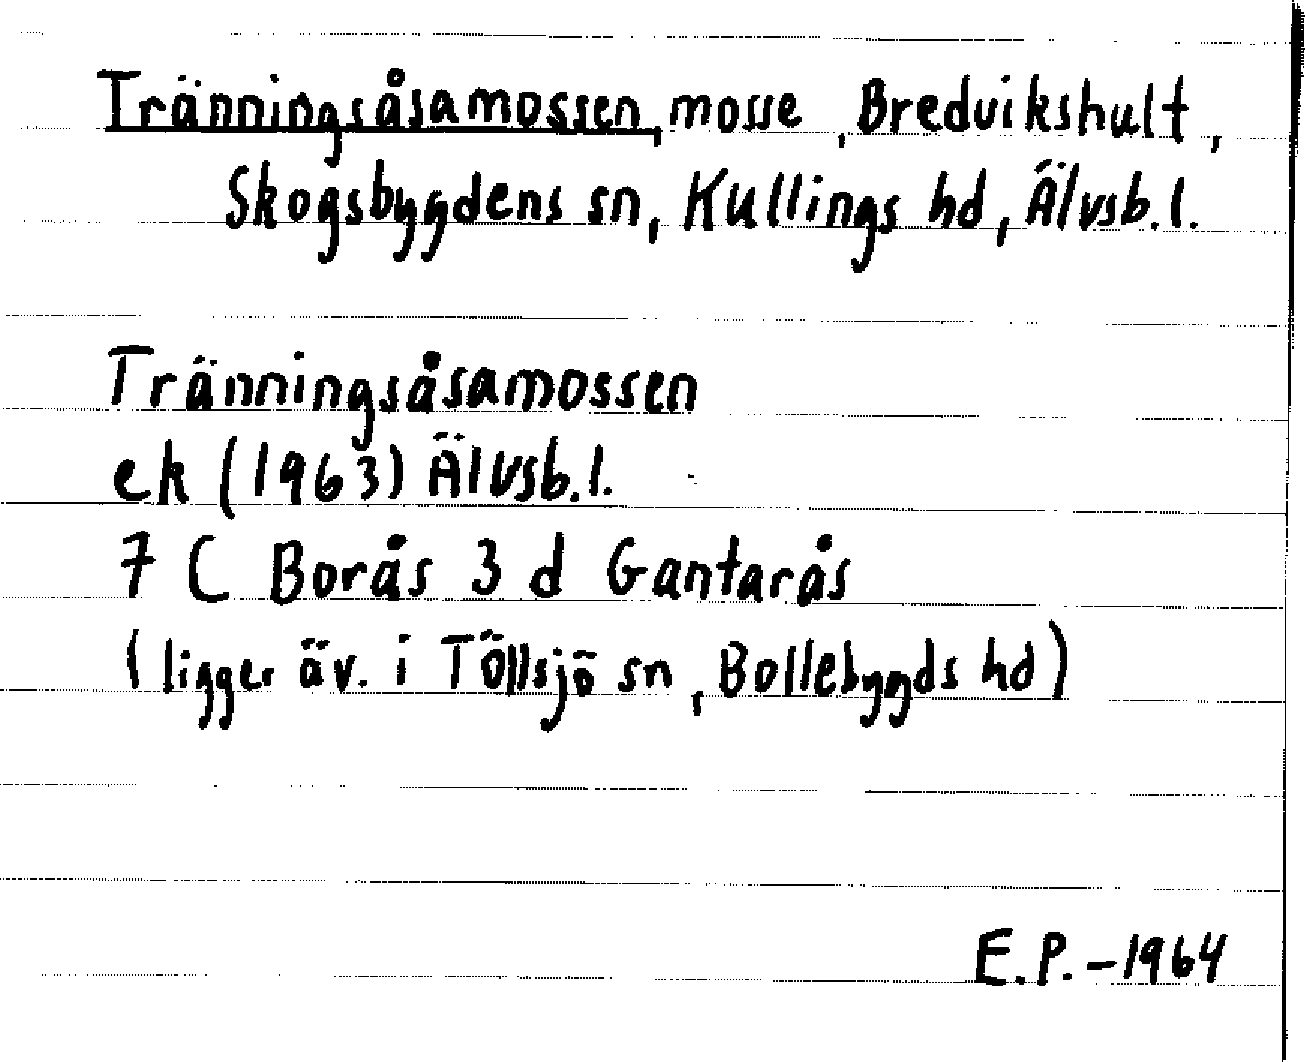 Tränningsåsamossen, mosse, Bredvikshult,
Skogsbygdens sn, Kullings hd, Älvsb.l.
Tränningsåsamossen
ek (1963) Älvsb.l.
7 C Borås 3 d Gantarås
(ligger äv. i Töllsjö sn, Bollebygds hd)
E.P. - 1964